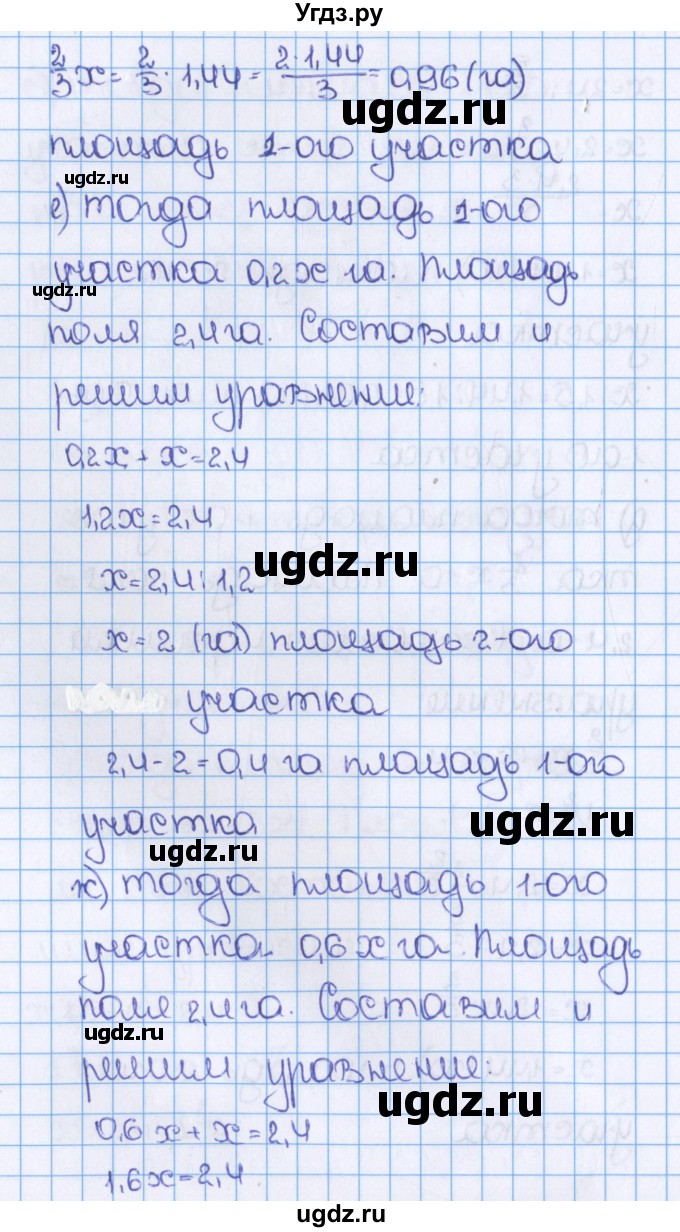 Угдз.ру
2/3 x = 2/3 · 1,44 = 2·1,44/3 = 0,96 (га)
ugdz.ru
площадь 1-ого участка
ugdz.ru
е) тогда площадь 1-ого
участка 0,2x га. Площадь
ugdz.ru
поля 2,4 га. Составим и
решим уравнение:
0,2x + x = 2,4
1,2x = 2,4
ugdz.ru
x = 2,4 : 1,2
x = 2 (га) площадь 2-ого
участка
2,4 - 2 = 0,4 га площадь 1-ого
участка
ugdz.ru
ugdz.ru
ж) тогда площадь 1-ого
участка 0,6x га. Площадь
поля 2,4 га. Составим и
ugdz.ru
решим уравнение:
ugdz.ru
0,6x + x = 2,4
1,6x = 2,4
ugdz.ru